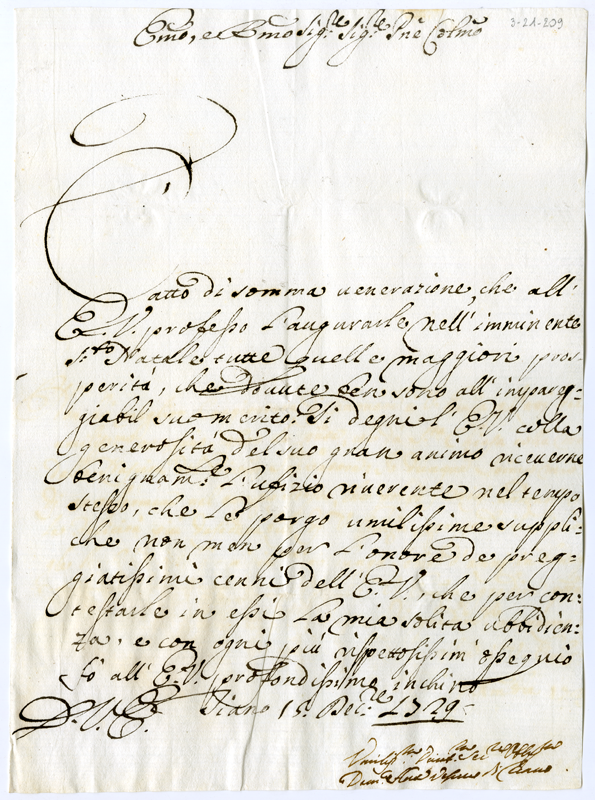 Emo, e Rmo Sigre Sigre Pne Colmo
3-21-209
È atto di somma venerazione, che all'
E. V. professo l'augurarle nell'imminente
S.to Natale tutte quelle maggiori pros-
perità, che dovute ben sono all'impareg-
giabil suo merito. Si degni l'E. V. colla
generosità del suo grand animo riceverne
benignam.te l'ufizio riverente nel tempo
stesso, che le porgo umilissime suppli-
che non men per l'onore de preg-
giatissimi cenni dell'E. V., che per con-
testarle in essi la mia solita ubbidien-
za, e con ogni più rispettosissim' ossequio
fò all'E. V. profondissimo inchino
D. V. E. 15 Dec.re 1729